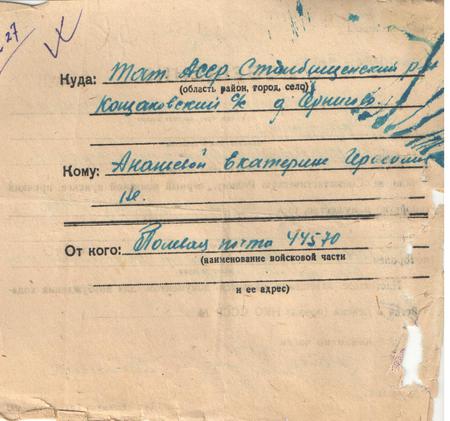 -27
Куда: Тат. АССР. Столбищенский р-н
(область район, город, село)
Кощаковский с/с д
Кому: Ананьевой Екатерине
не.
От кого: Полевая почта 44570
(наименование войсковой части
и ее адрес)